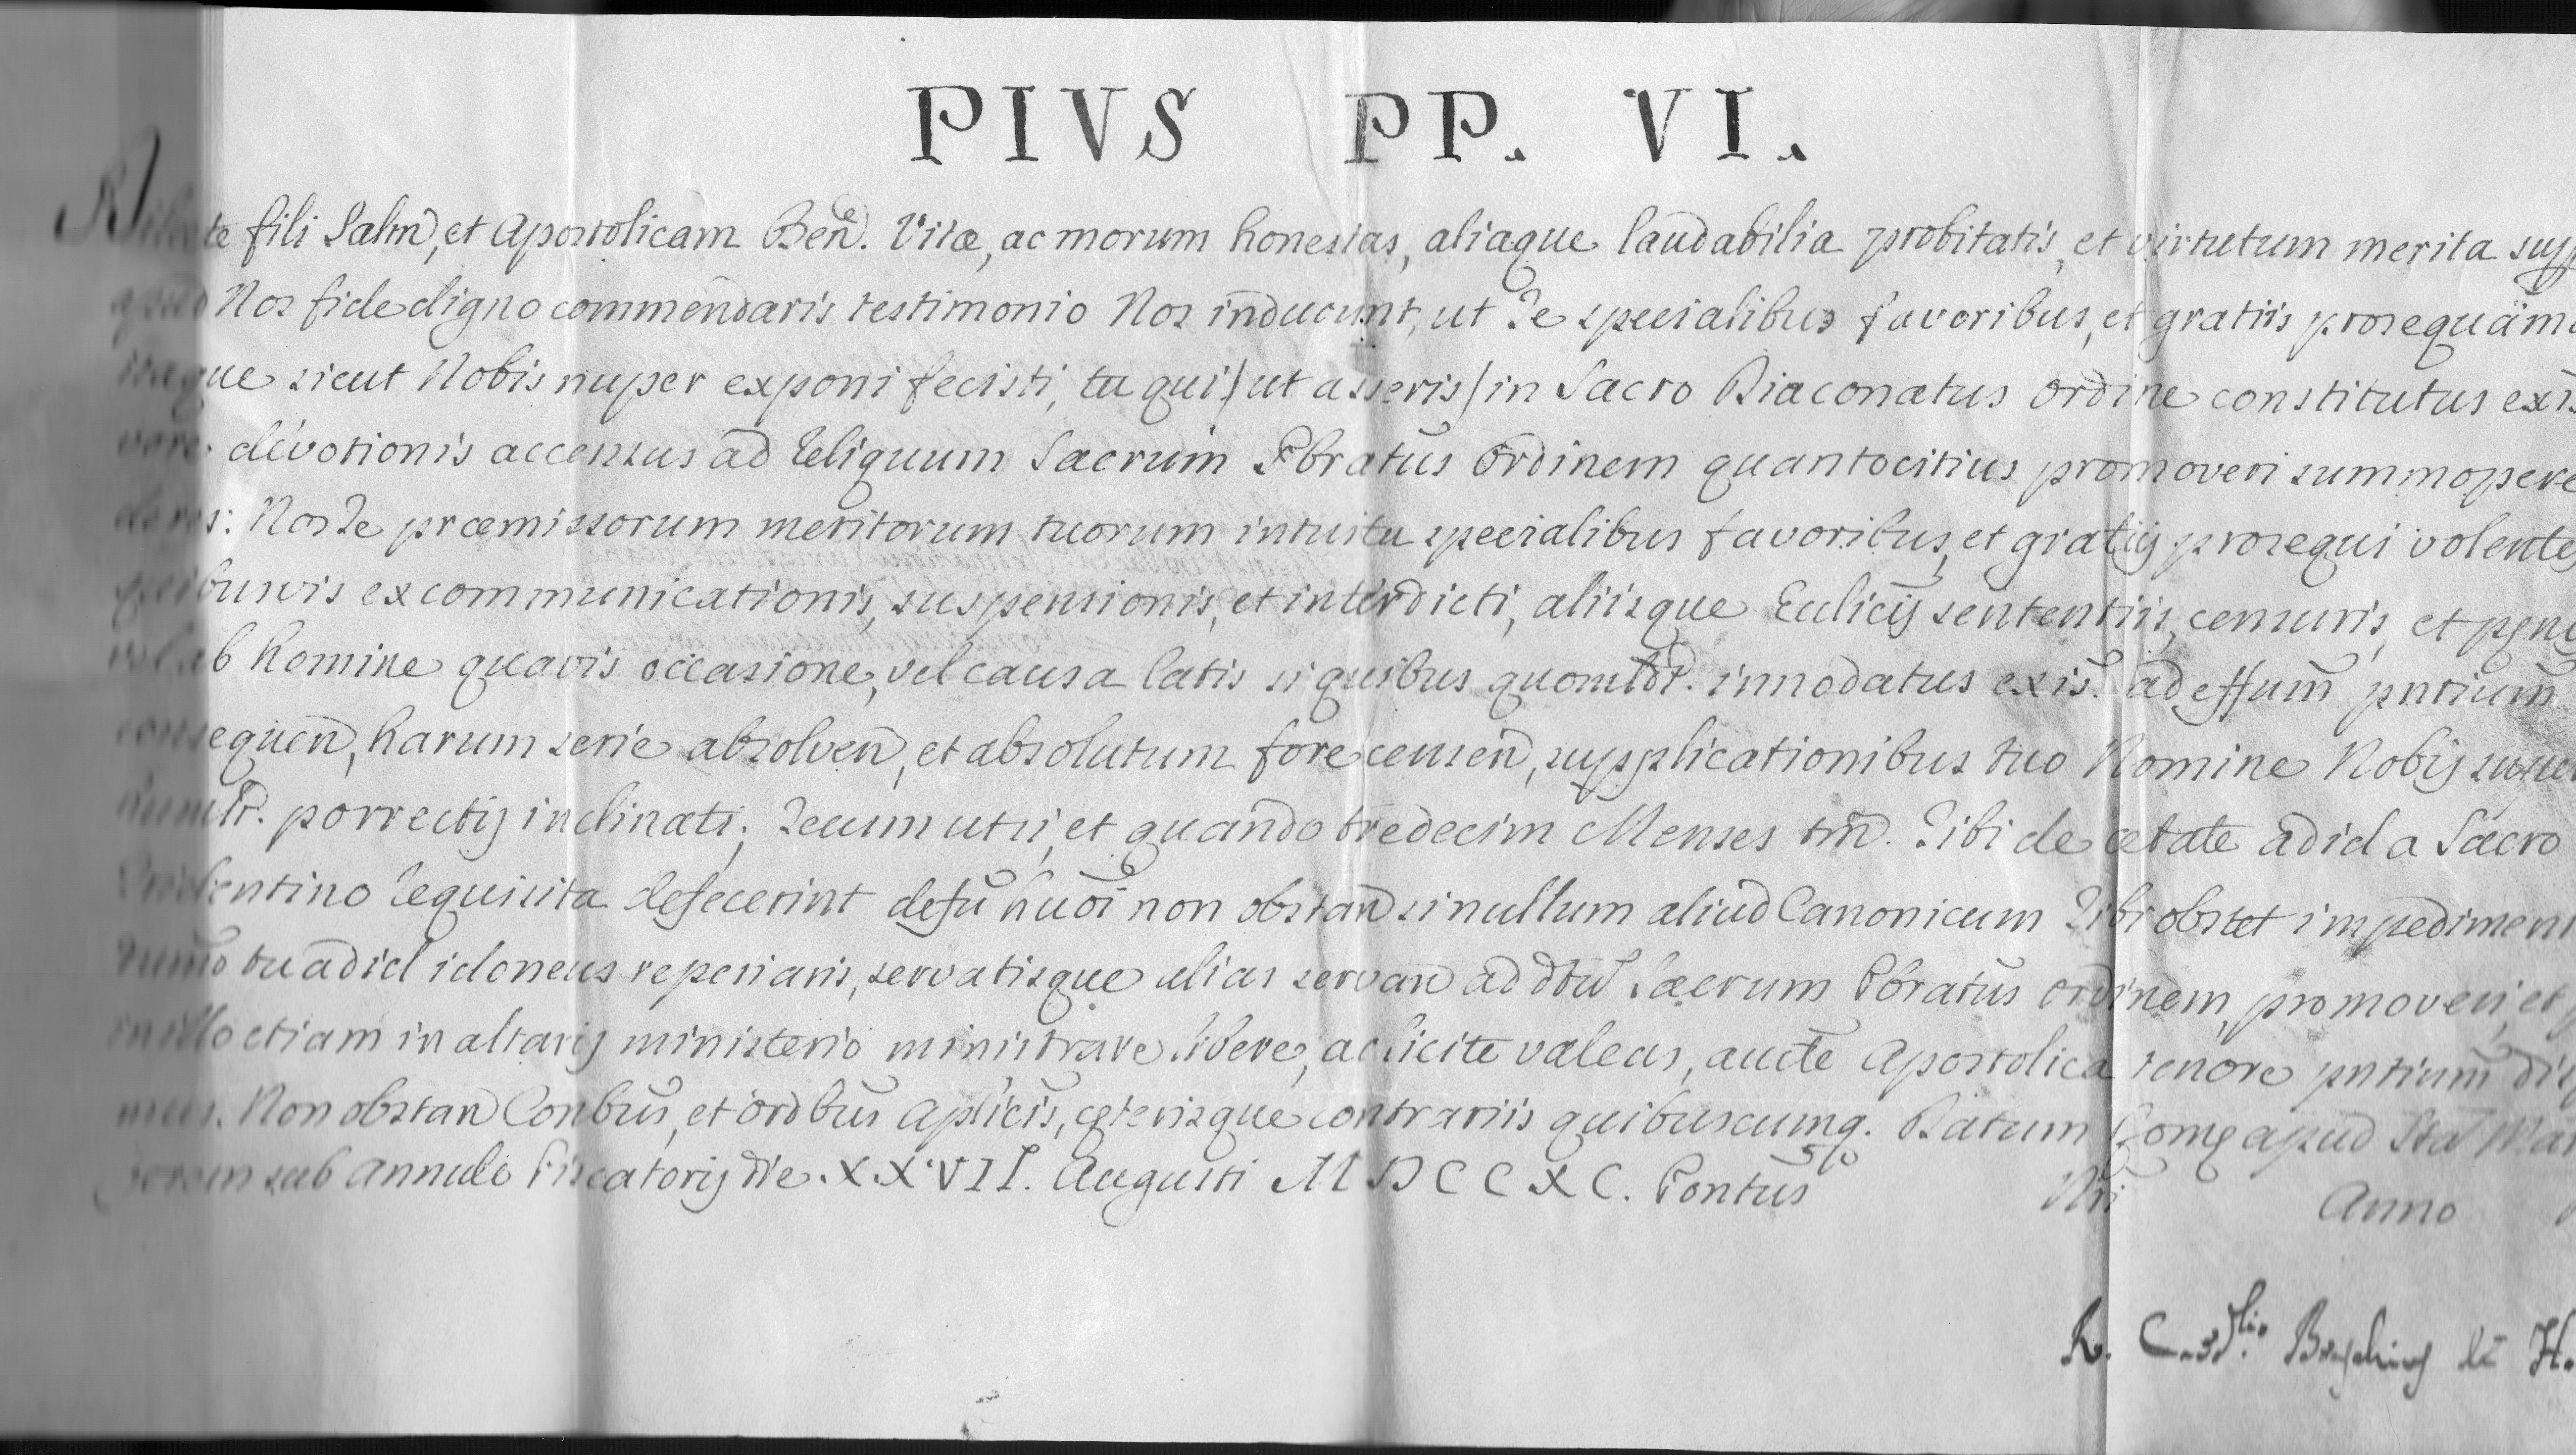 PIVS PP. VI.
Dilecte fili Salm, et Apostolicam Ben. Vitæ, ac morum honestas, aliaque laudabilia probitatis, et virtutum merita sup
apud Nos fide digno commendaris testimonio Nos inducunt, ut Te specialibus favoribus, et gratiis prosequam
itaque sicut Nobis nuper exponi fecisti, tu qui / ut asseris / in Sacro Diaconatus ordine constitutus exis
vore devotionis accensus ad Reliquum Sacrum Pbratus Ordinem quantocitius promoveri summopere
deres: Nos Te præmissorum meritorum tuorum intuitu specialibus favoribus, et gratiis prosequi volente
quibusvis excommunicationis, suspensionis, et interdicti, aliisque Ecclicis sententiis, censuris, et pęnis
vel ab homine quavis occasione, vel causa latis si quibus quomlbt. innodatus exis. ad effum pntium
consequen, harum serie absolven, et absolutum fore censen, supplicationibus tuo Nomine Nobis super
humilr. porrectis inclinati; Tecum ut si, et quando tredecim Menses tm. Tibi de ætate ad id a Sacro
Tridentino requisita defecerint defu huoi non obstan si nullum aliud Canonicum Tibi obstet impedimen
tu ad id idoneus reperiaris, servatisque alias servan ad dtu Sacrum Pbratus ordinem, promoveri, et
in illo etiam in altaris ministerio ministrare libere, ac licite valeas, aucte Apostolica tenore pntium dis
mus. Non obstan Conbus, et ordbus Aplicis, cęterisque contrariis quibuscumq. Datum Romę apud Sta Mar
jorem sub Annulo Piscatoris die. XXVII. Augusti MDCCXC. Pontus Nri Anno
R. C.